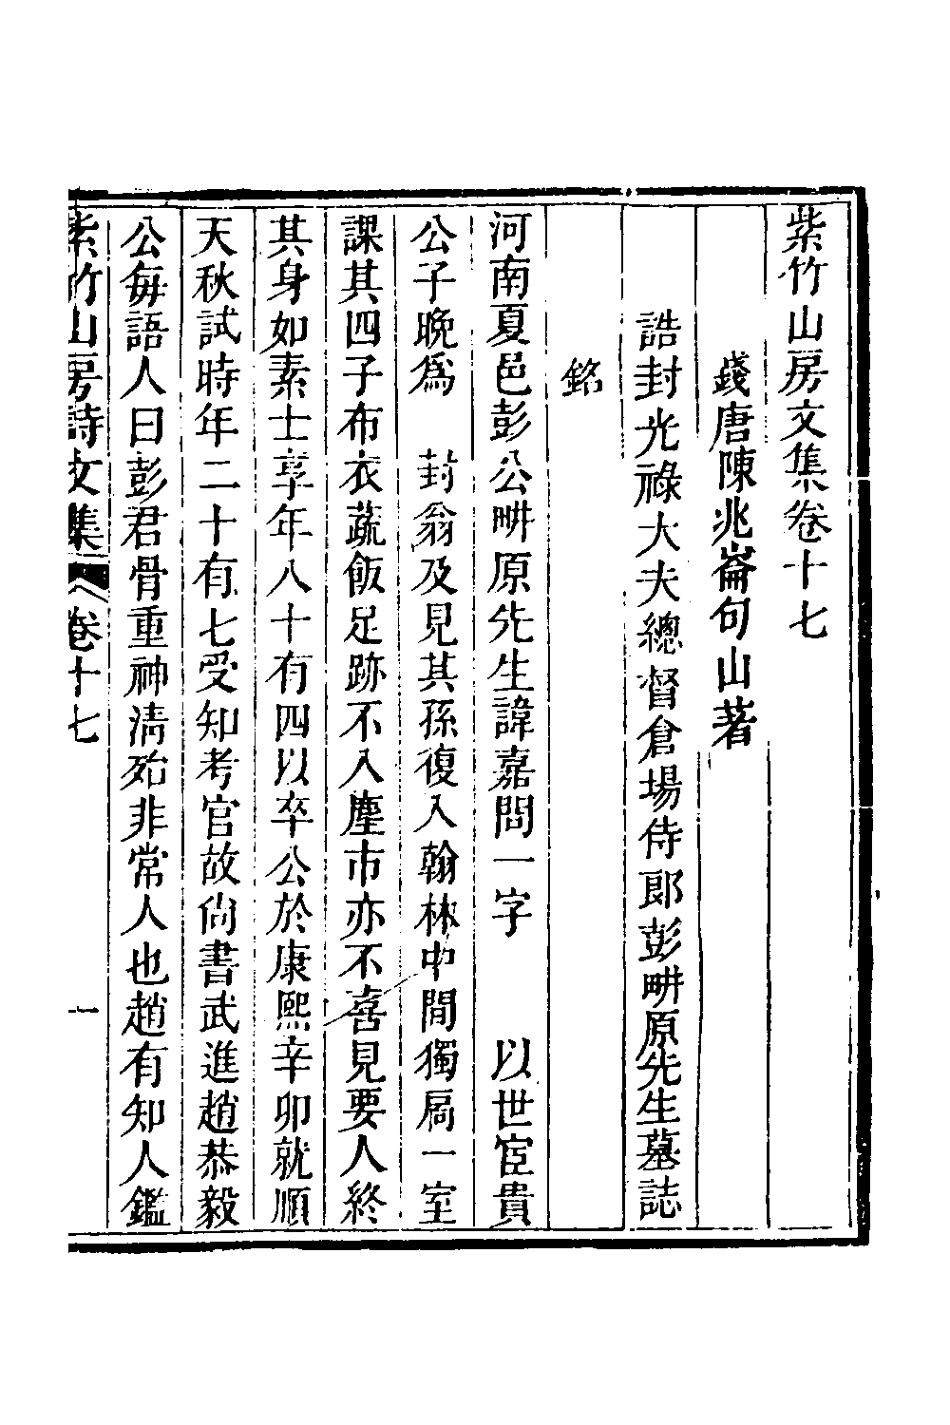 紫竹山房文集卷十七
錢唐陳兆崙句山著
誥封光祿大夫總督倉場侍郎彭畊原先生墓誌
銘
河南夏邑彭公畊原先生諱嘉問一字　　以世宦貴
公子晚爲　封翁及見其孫復入翰林中間獨扃一室
課其四子布衣蔬飯足跡不入塵市亦不喜見要人終
其身如素士享年八十有四以卒公於康熙辛卯就順
天秋試時年二十有七受知考官故尙書武進趙恭毅
公每語人曰彭君骨重神淸殆非常人也趙有知人鑑
紫竹山房詩文集　卷十七　一